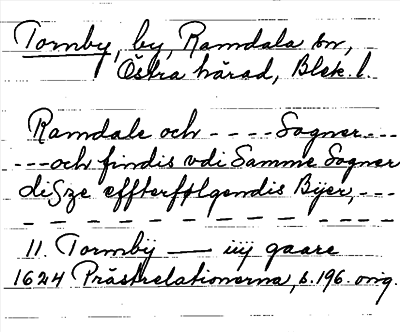 Tormby, by, Ramdala sn,
Östra härad, Blek. l.
Ramdale och - - - - Sogner - - -
- - - och findis vdi Samme Sogner
disze effterfølgendis Bÿer, - - -
- - - - - - - - - - - - - -
11. Tormbÿ — iiij gaare
1624 Prästrelationerna, s. 196. orig.